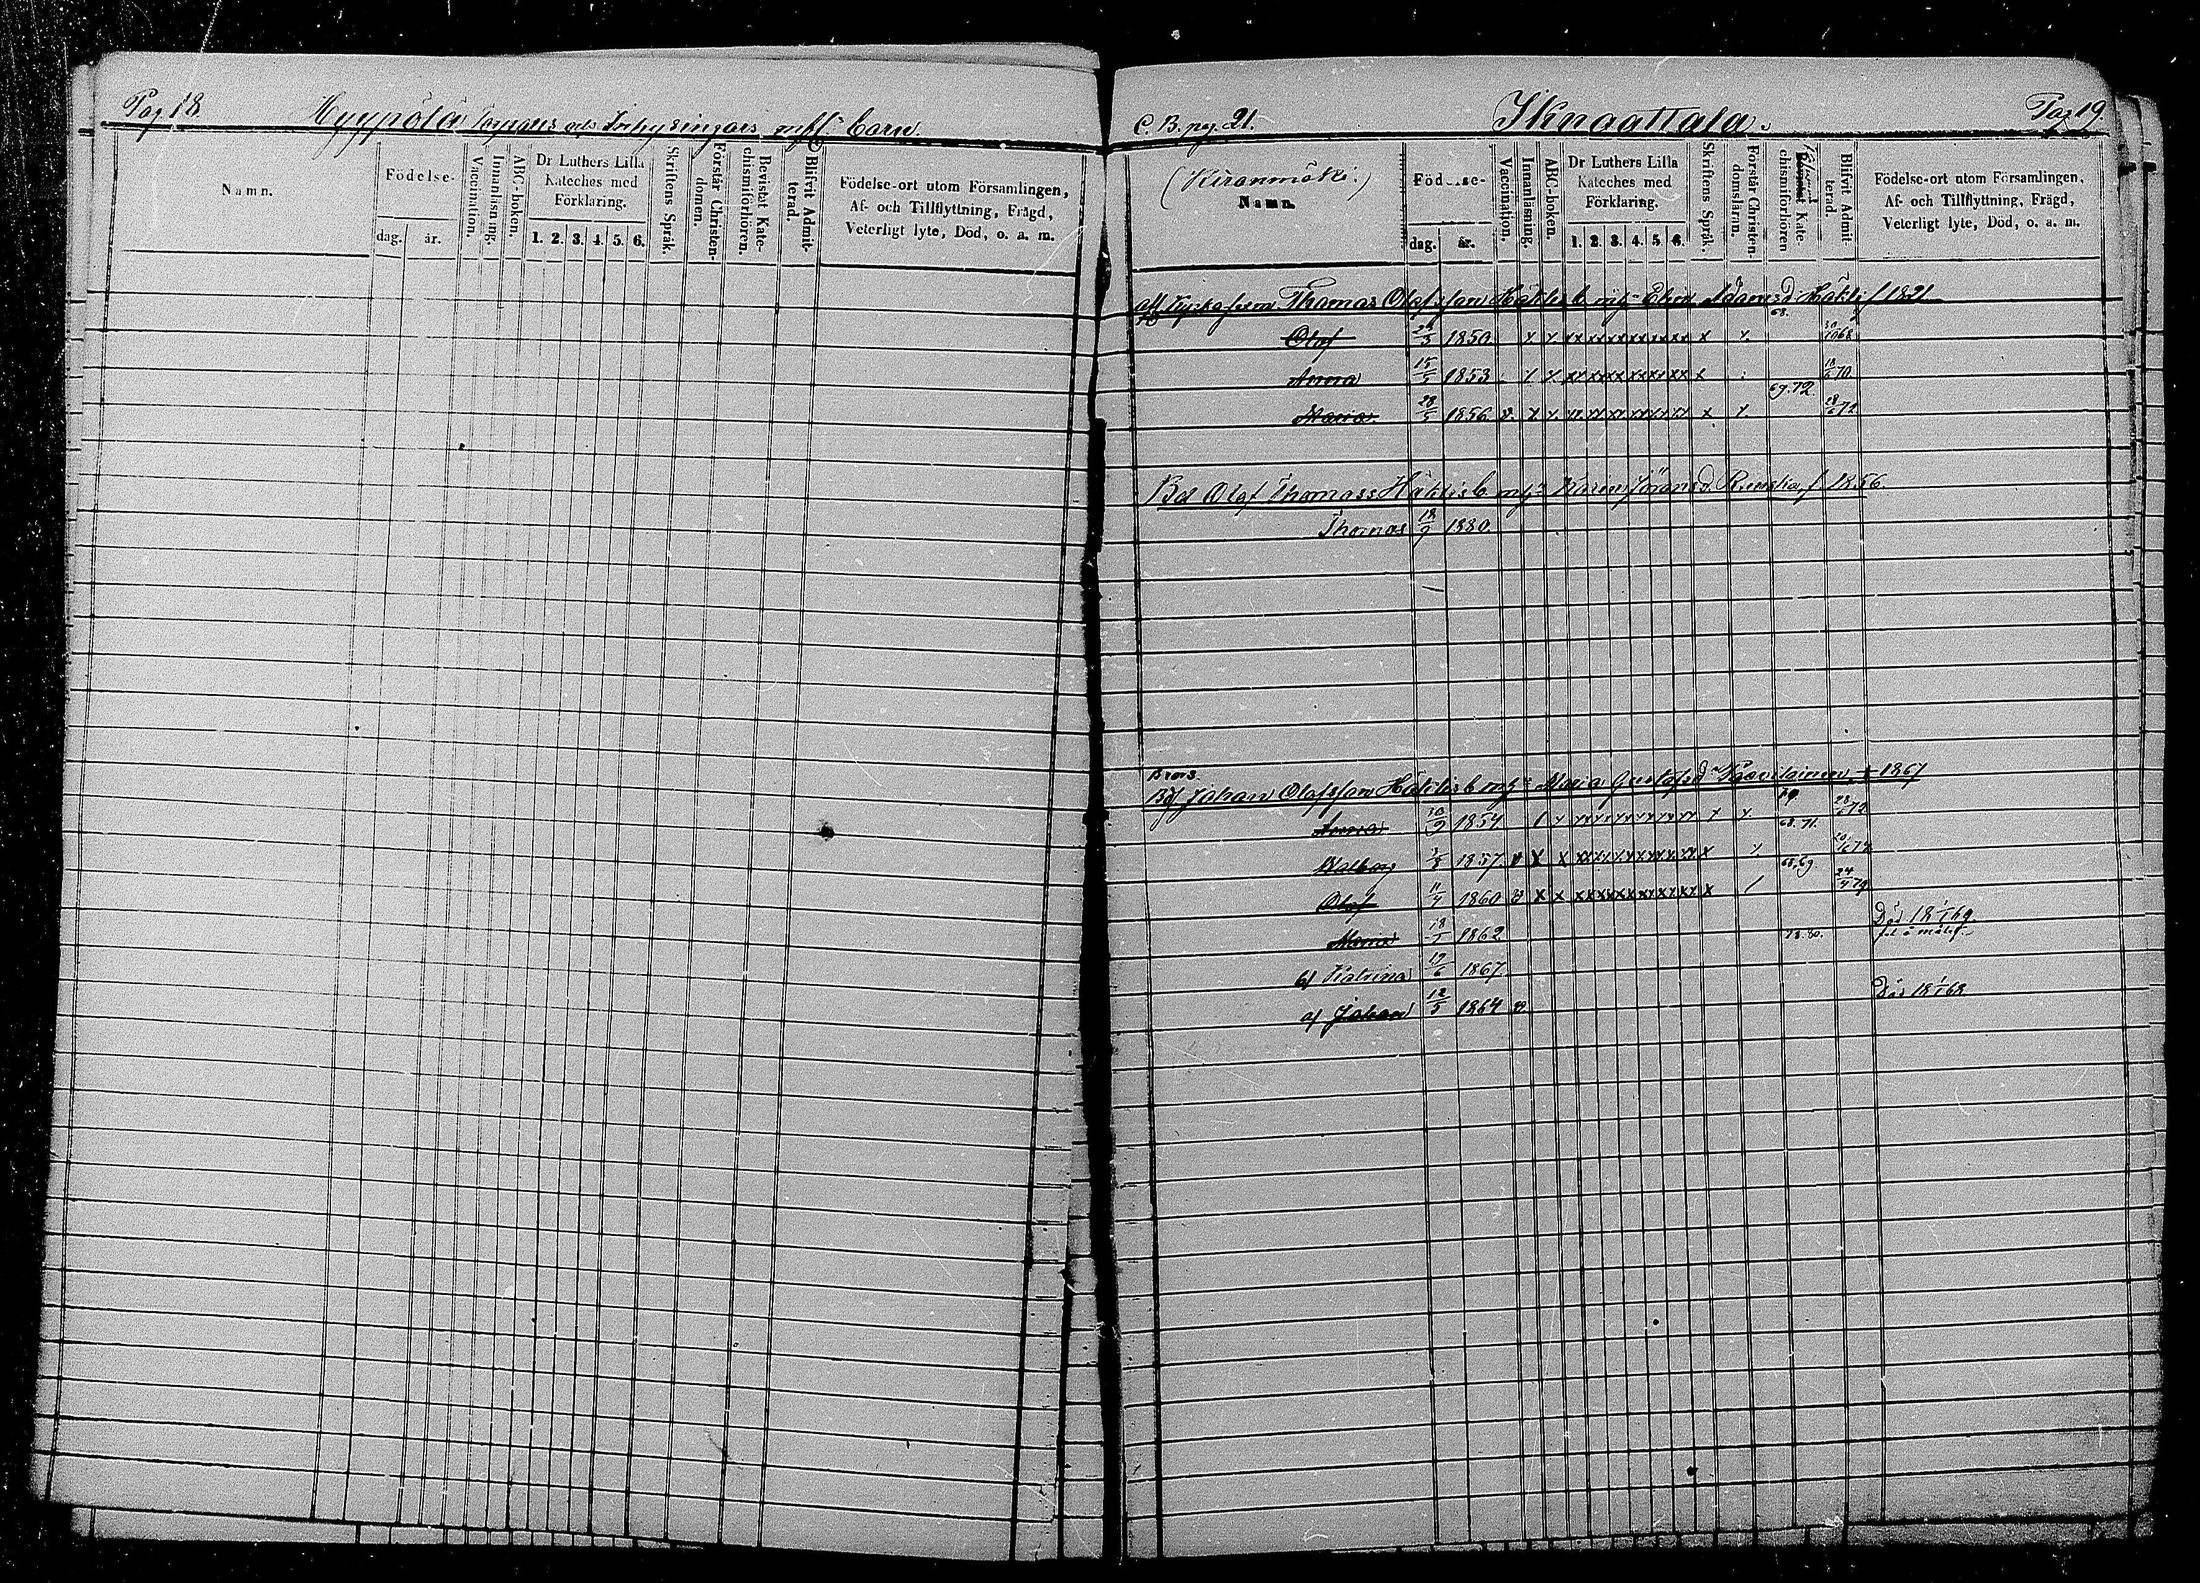 Pag 18.
Hyypölä Torpares och Inhysingars m fl. barn.
Namn.
Födelse-
dag.
år.
Vaccination.
Innanläsning.
ABC-boken.
Dr Luthers Lilla
Kateches med
Förklaring.
1. 2. 3. 4. 5. 6.
Skriftens Språk.
Förstår Christen-
domen.
Bevistat Kate-
chismiförhören.
Blifvit Admit-
terad.
Födelse-ort utom Församlingen,
Af- och Tillflyttning, Frägd,
Veterligt lyte, Död, o. a. m.
C. B. pag. 21.
Iknaattala.
Pag 19.
(Kiranmäki.)
Namn.
Födelse-
dag.
år.
Vaccination.
Innanläsning.
ABC-boken.
Dr Luthers Lilla
Kateches med
Förklaring.
1. 2. 3. 4. 5. 6.
Skriftens Språk.
Förstår Christen-
domsläran.
Kate-
chismiförhören
Blifvit Admit-
terad.
Födelse-ort utom Församlingen,
Af- och Tillflyttning, Frägd,
Veterligt lyte, Död, o. a. m.
Thomas Olofsson Häkli's b. m h:n Elin Adamsd. Häkli f 1821
Olof 1850 x x xx xx xx xx xx xx x x 68.
Anna 15/5 1853 x x xx xx xx xx xx xx x 18/6 70
Maria 28/5 1856 v. x x xx xx xx xx xx xx x x 69.72. 18/6 72
Bd Olof Thomass Häkli's b. m h:n Karin Göransd. f 1856
Thomas 18/9 1880.
Brors.
Bdf Johan Olofsson Häkli's b. m h:n Maria Gustafsd Paavilainen 1867
Anna 10/9 1854 x xx xx xx xx xx xx x x
Walborg 1857 v x x xx xx xx xx xx xx x x 68.71.
Olof 11/4 1860 v x x xx xx xx xx xx xx x / 68,69 79
Maria 18/1 1862 Död 18 69.
b) Katrina 17/6 1867 78.80.
a) Johan 12/5 1864 v. Död 18 68